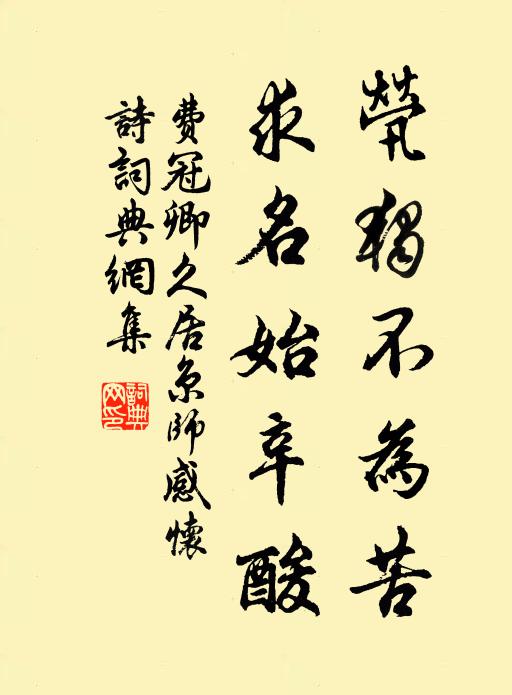 煢獨不為苦
求名始辛酸
費冠卿久居京師感懷
詩詞典網集
詞典網印